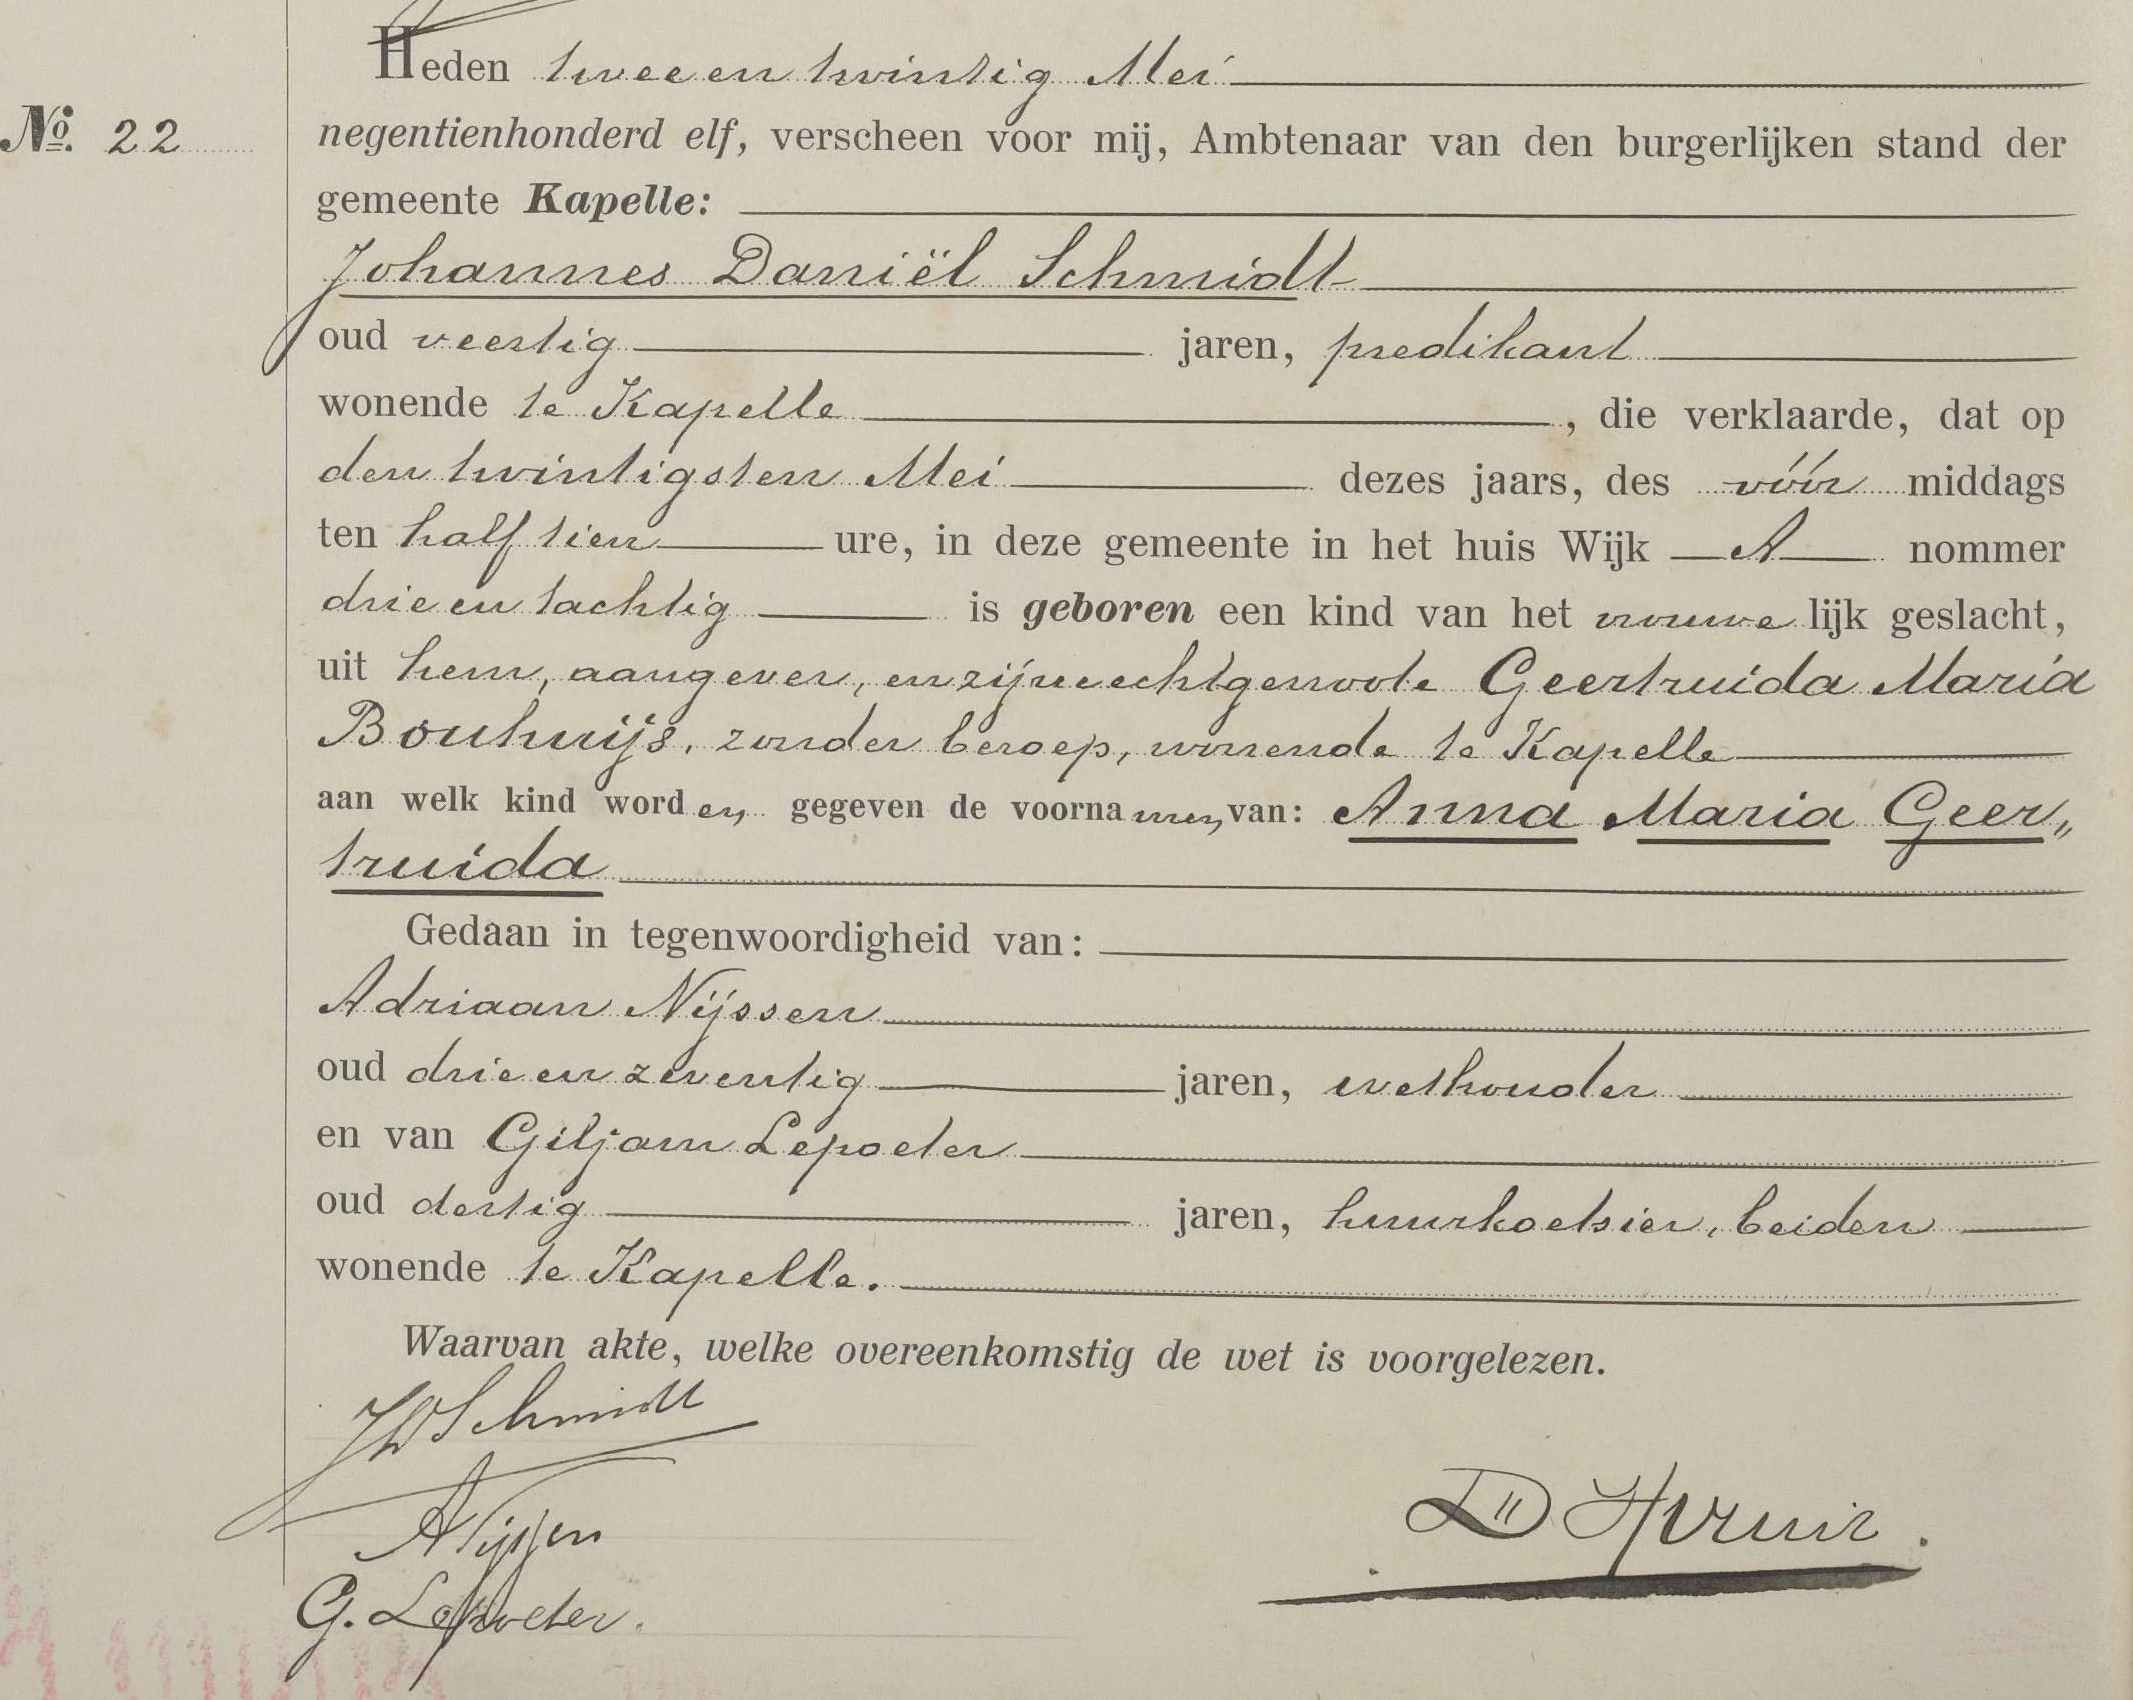 Heden twee en twintig Mei
No. 22 negentienhonderd elf, verscheen voor mij, Ambtenaar van den burgerlijken stand der
gemeente Kapelle:
Johannes Daniël Schmidt
oud veertig jaren, predikant
wonende te Kapelle, die verklaarde, dat op
den twintigsten Mei dezes jaars, des vóór middags
ten half tien ure, in deze gemeente in het huis Wijk A nommer
drie en tachtig is geboren een kind van het vrouwe lijk geslacht,
uit hem, aangever, en zijne echtgenoote Geertruida Maria
Bouhuijs, zonder beroep, wonende te Kapelle
aan welk kind worden gegeven de voornamen van: Anna Maria Geer„
truida
Gedaan in tegenwoordigheid van:
Adriaan Nijssen
oud drie en zeventig jaren, wethouder
en van Giljam Lepoeter
oud dertig jaren, huurkoetsier, beiden
wonende te Kapelle.
Waarvan akte, welke overeenkomstig de wet is voorgelezen.
JDSchmidt
A Nijssen
G. Lepoeter.